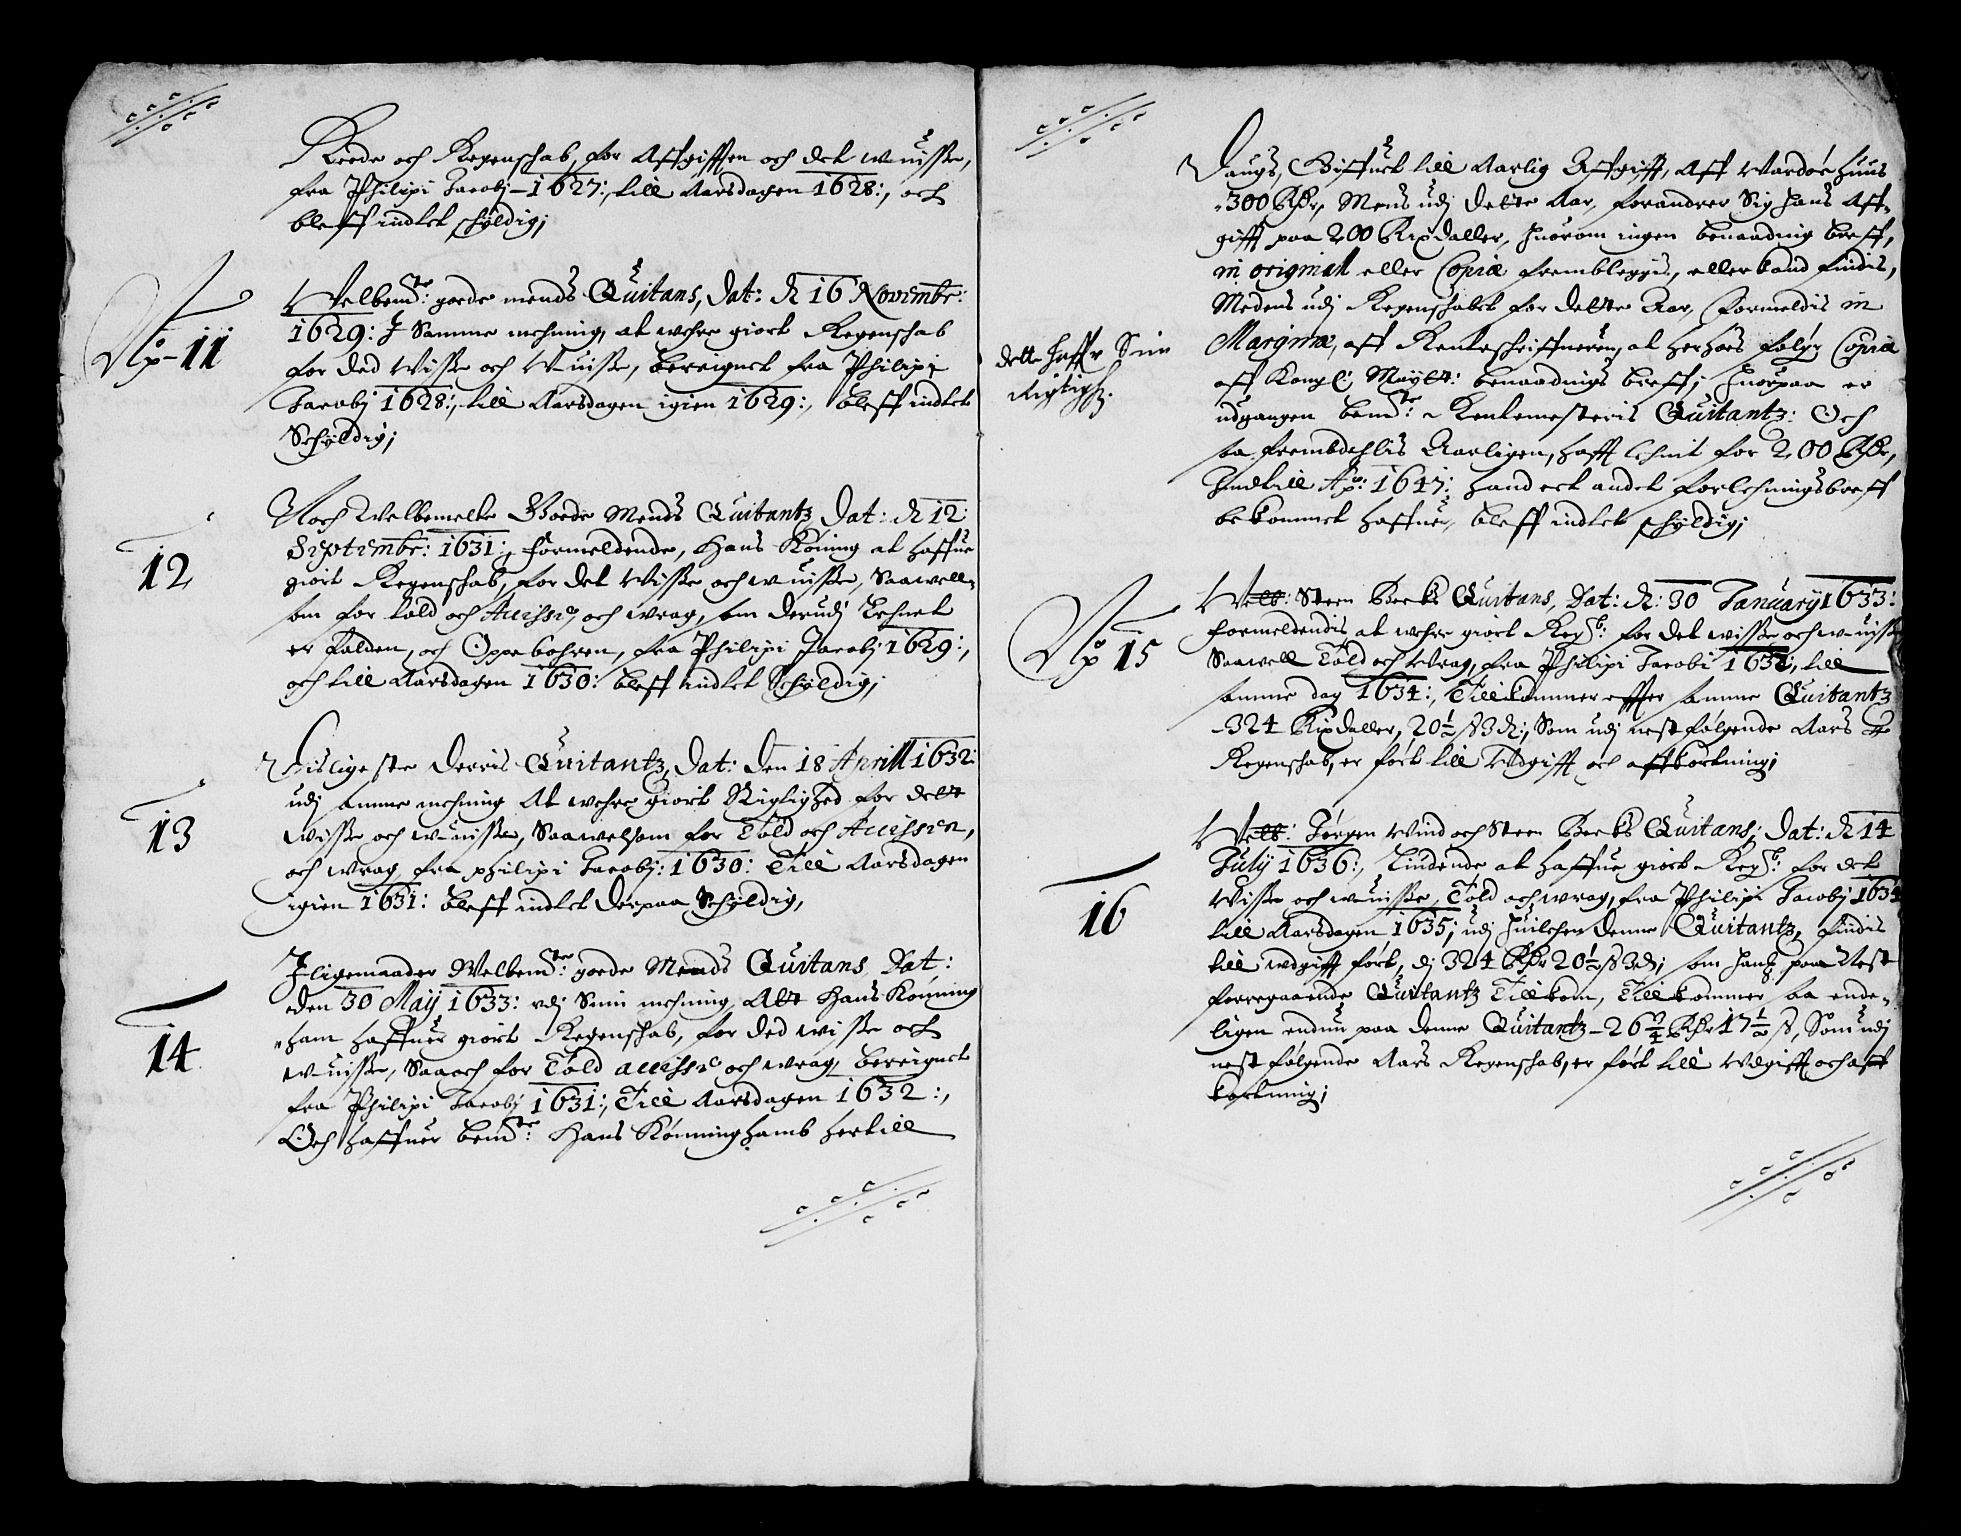 Rede och Regenschab, for Affgifften och det wuisse,
fra Philipi Jacobj 1627:, till Aarsdagen 1628:, och
bleff indtet schyldig;
No 11
Velbemte: goede mends Quitans, Dat: d 16 Novembr:
1629: J Samme mehning, at wehre giort Regenschab
for ded Wisse och Wuisse, bereignet fra Philipi
Jacobj 1628:, till Aarsdagen igien 1629:, bleff indtet
Schyldig;
12
Noch Welbemelte Goede Mends Quitantz Dat: d 12:
Septembr: 1631:, formeldende, Hans Køning at haffue
giort Regenschab, for det Wisse och wuisse, Saawell
som for told och Accisse och wrag, som derudj Lehnet
er falden, och Oppebohren, fra Philipi Jacobj 1629:,
och till Aarsdagen 1630: bleff indtet Schyldig;
13
Disligeste Derris Quitantz, Dat: den 18 Aprill 1632:
udj samme mehning At wehre giort Rigtighed for dett
wisse och wuisse, Saawelsom for Told och Accissen,
och wrag, fra philipi Jacobj: 1630: Till Aarsdagen
igien 1631: bleff indtet Derpaa Schyldig,
14
Jligemaader Welbemte: goede Mends Quitans Dat:
den 30 Maij 1633: vdj Sinn mehning, Att Hans Konning
ham haffuer giort Regenschab, for ded wisse och
wuisse, Saa och for Told accisse och wrag, bereignet
fra Philipi Jacobj 1631:, Till Aarsdagen 1632:,
Och haffuer bemte: Hans Kønninghamb hertill
Daugs, Giffuet till Aarlig Affgifft, Aff Wardøe Huus
300 Rdr, Mens udj Dette Aar, forandrer Sig hans Aff-
gifft paa 200 Rixdaller, huorom ingen benaading breff,
in originall eller Copiæ frembleggis, eller kand findis,
Medens udj Regenschabet for dette Aar, formeldis in
Margine, aff Renteschriffueren, at herhoes følger Copiæ
aff Kongl: Maytt: benaadnings breff; huorpaa er
udgangen bemte: Rentemesteris Quitantz: Och
saa frembdehlis Aarligen, haff [...] for 200 Rdr,
Jndtill Ao: 1647: hand ect andet forlehningsbreff
bekommet haffuer, bleff indtet schyldig;
dett haffr Sin
Rigtighd.
No 15
Velb: Steen Becks Quitans, Dat: d: 30 January 1635:
formeldendis at wehre giort Regsb: for det wisse och wuisse
Saawell Told och Wrag, fra Philipi Jacobi 1632:, till
samme dag 1634:, Tillkommer effter samme Quitantz
324 Rixdaller, 20½ ß 3 d:, Som udj nest følgende Aars
Regenschab, er ført till Udgifft och affkortning;
16
Velb: Jørgen Wind och Steen Becks Quitans; Dat: d 14
July 1636:, Liudende at haffue giort Regsb: for det
Wisse och wuisse, Told och wrag, fra Philipi Jacobj 1634
till Aarsdagen 1635; udj huilchen denne Quitantz, findis
till udgifft ført, dj 324 Rdr 20½ ß 3 d; som hannem paa Nest
forregaaende Quitantz Tillkom, Tillkommer saa ende-
ligen endnu paa denne Quitantz 26¾ Rdr 17½ ß, Som udj
nest følgende Aars Regenschab, er ført till Udgifft och aff
kortning;